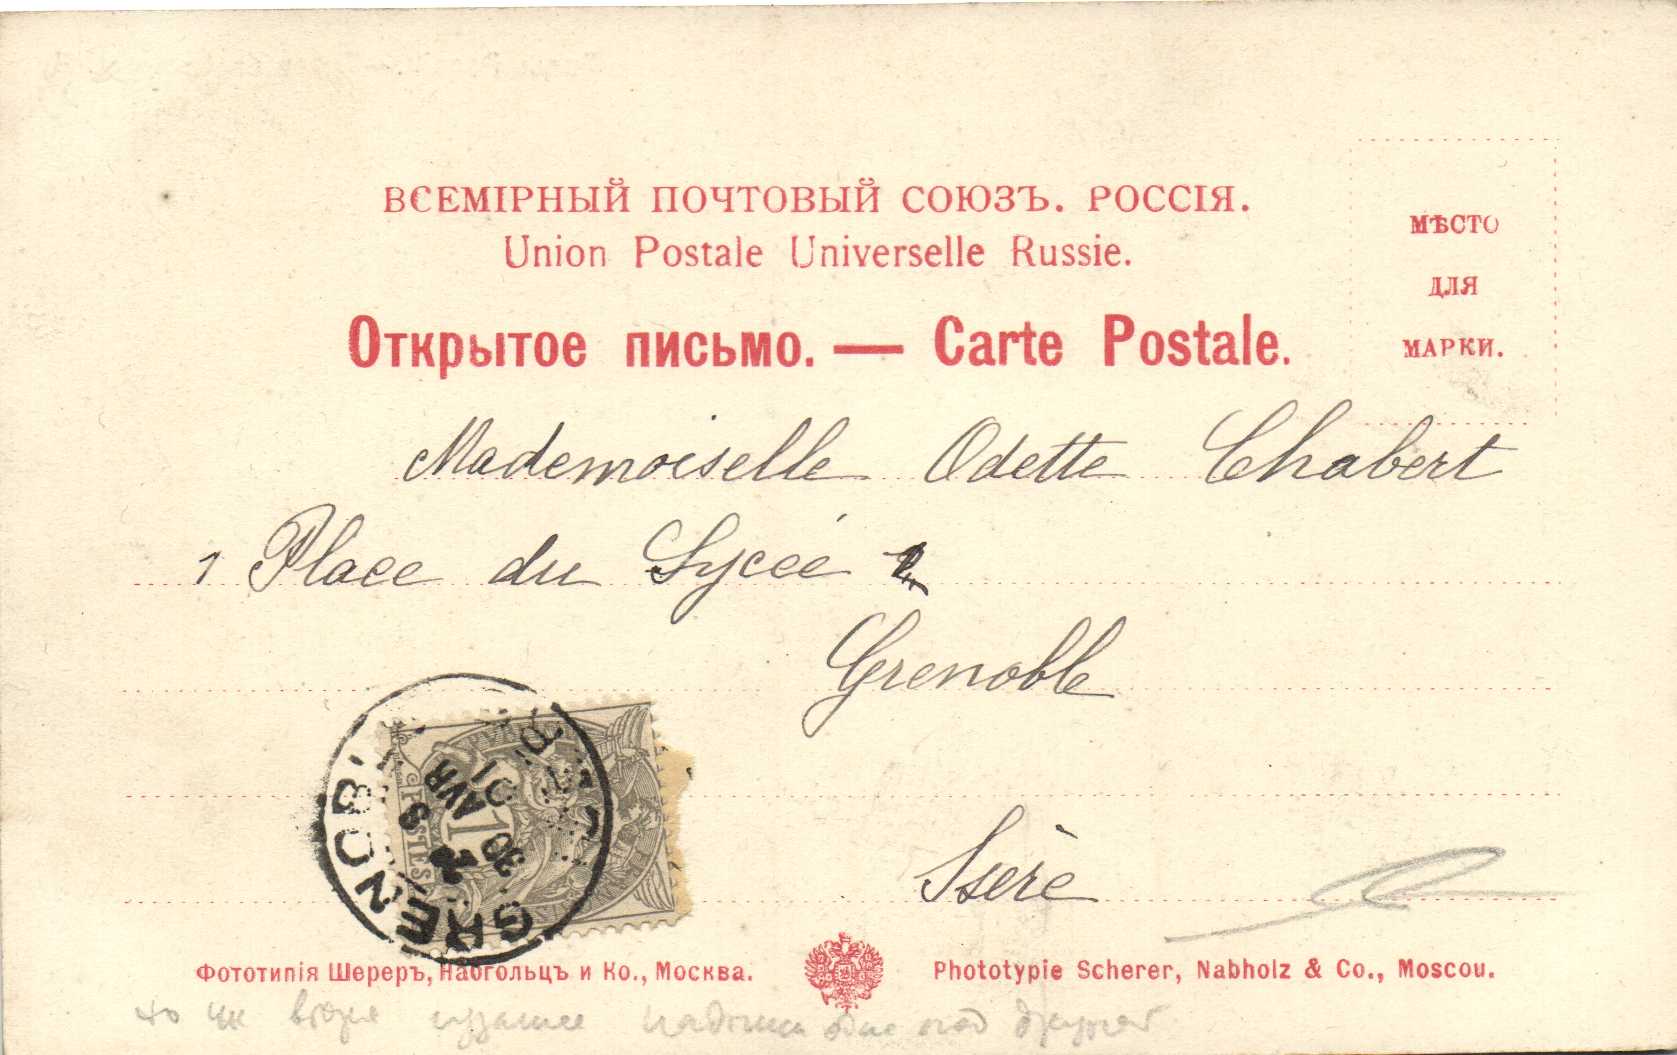 ВСЕМІРНЫЙ ПОЧТОВЫЙ СОЮЗЪ. РОССІЯ.
Union Postale Universelle Russie.
МѢСТО
ДЛЯ
МАРКИ.
Открытое письмо. — Carte Postale.
Mademoiselle Odette Chabert
1 Place du Lycée
Grenoble
GRENOBLE
30 AVR
01
POSTES
1
Isère
Фототипія Шереръ, Набгольцъ и Ко., Москва.
Phototypie Scherer, Nabholz & Co., Moscou.